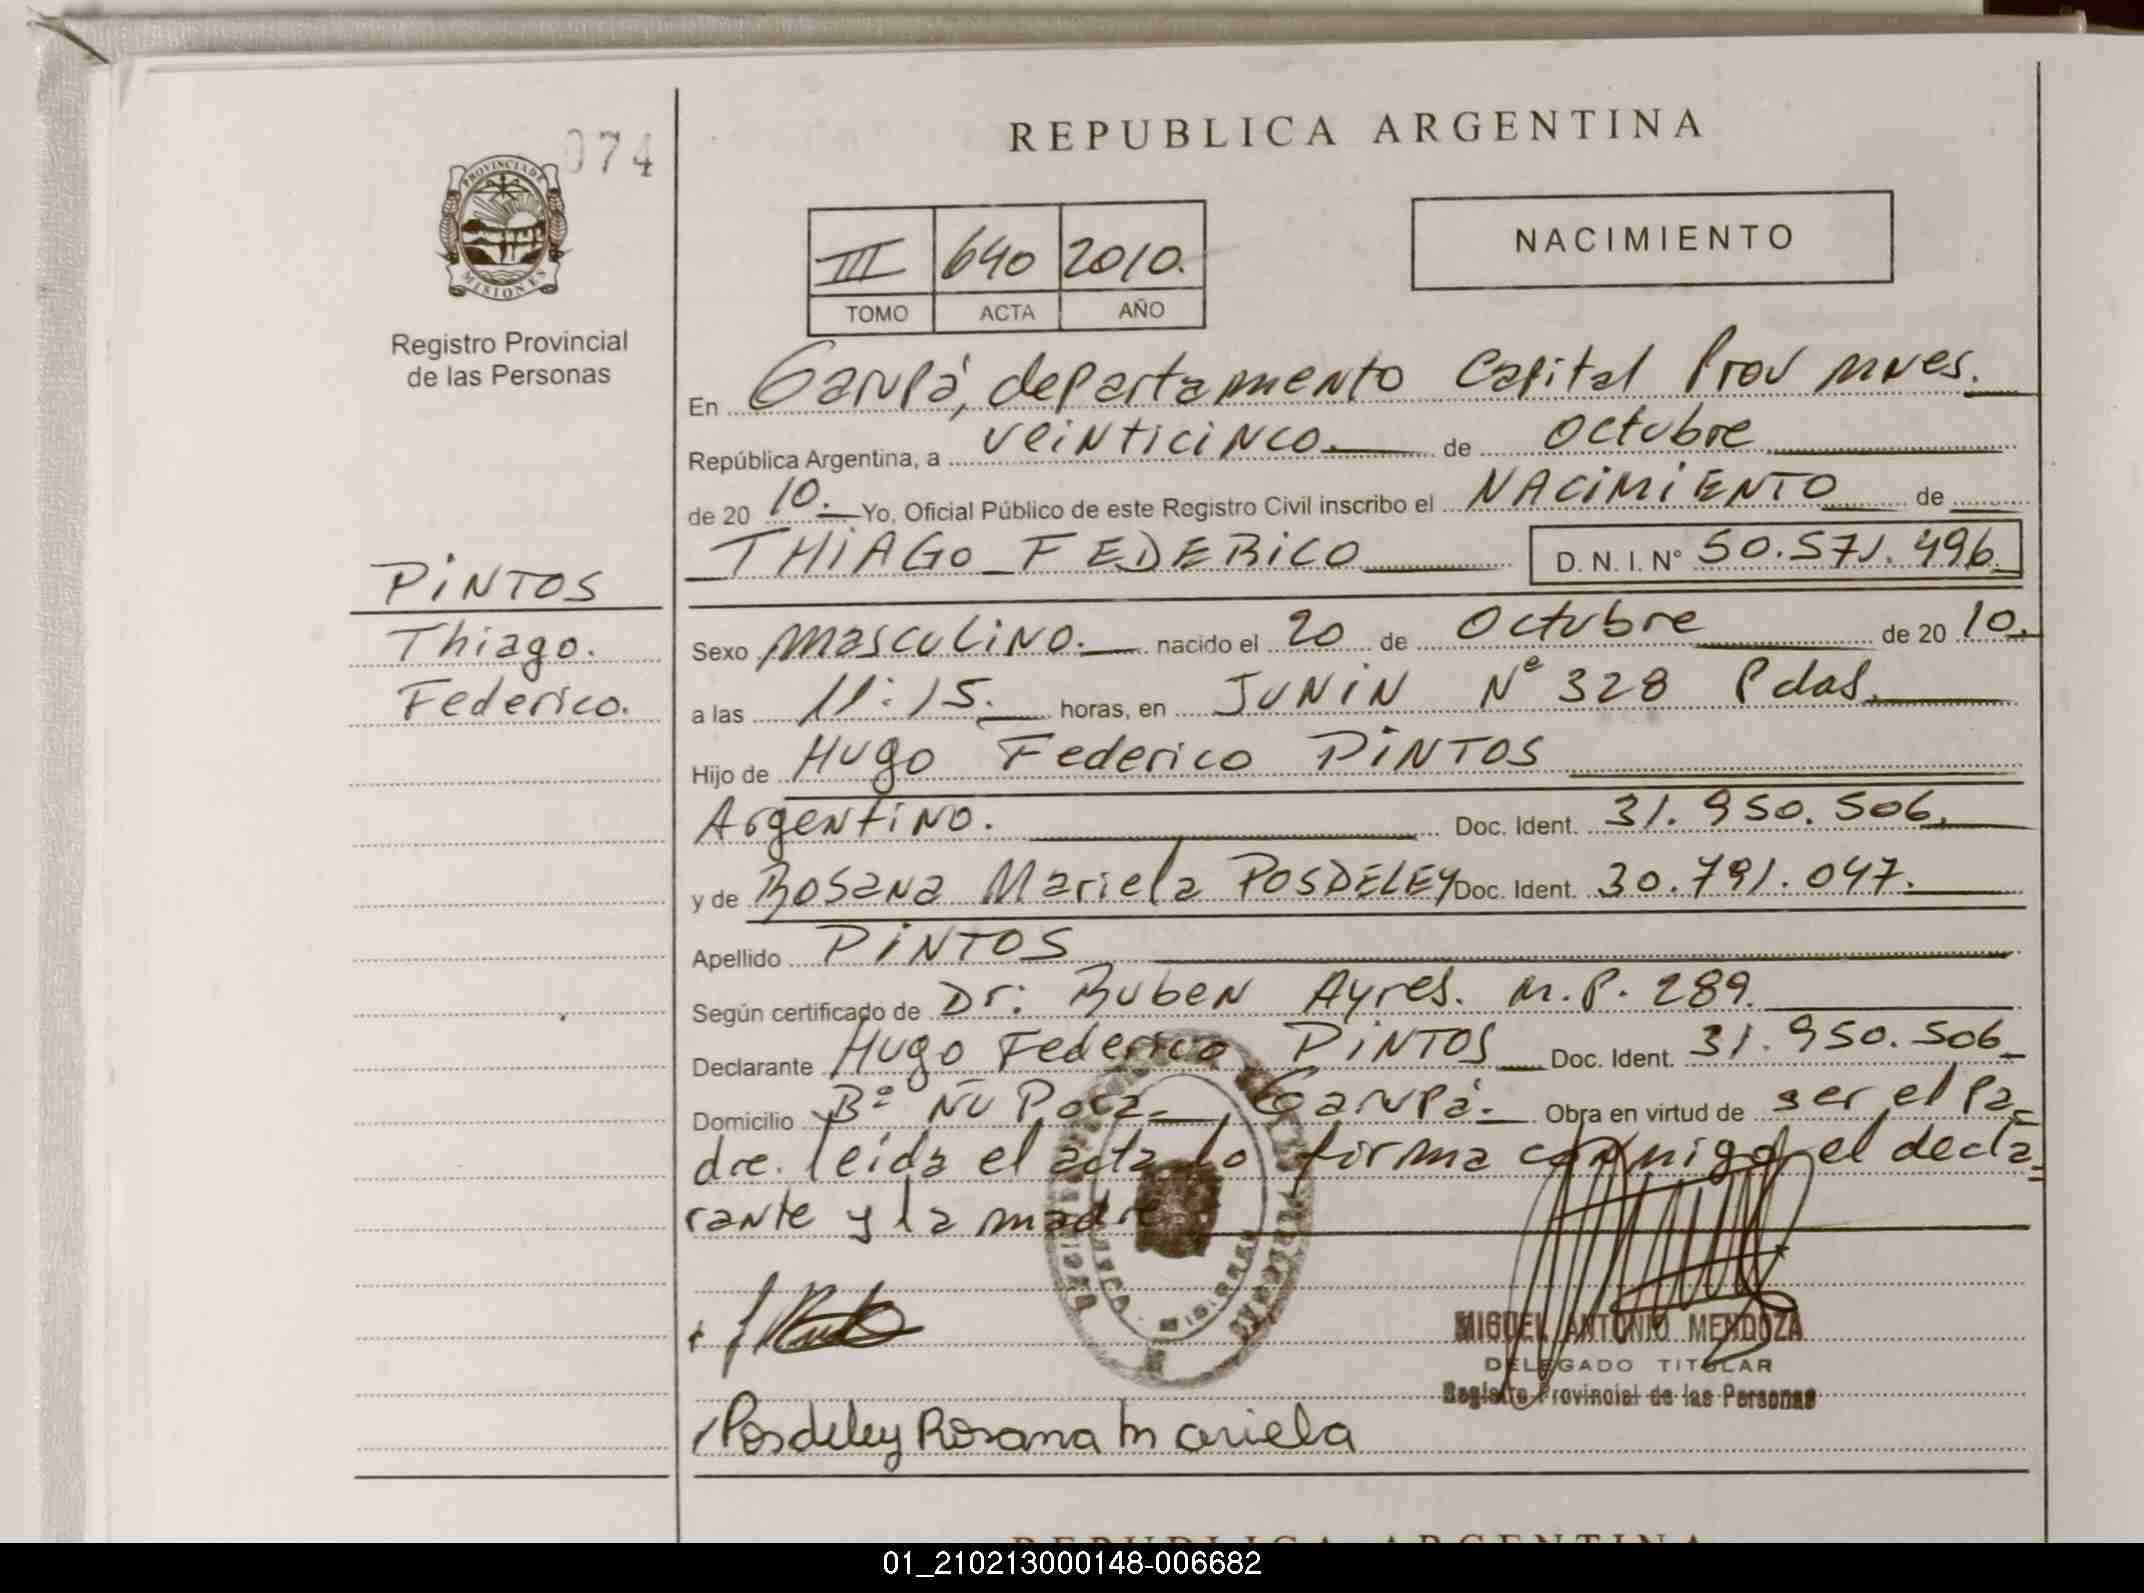 REPUBLICA ARGENTINA
074
PROVINCIA DE
MISIONES
Registro Provincial
de las Personas
III 640 2010.
TOMO ACTA AÑO
NACIMIENTO
En Garupá, departamento Capital Prov Mnes.
República Argentina, a veinticinco. de octubre
de 20 10. Yo, Oficial Público de este Registro Civil inscribo el NACIMIENTO de
THIAGO FEDERICO D. N. I. N° 50.571.496.
PINTOS
Thiago.
Federico.
Sexo masculino. nacido el 20 de Octubre de 20 10.
a las 11:15. horas, en JUNIN N° 328 Pdas.
Hijo de Hugo Federico PINTOS
Argentino. Doc. Ident. 31.950.506.
y de Rosana Mariela POSDELEY Doc. Ident. 30.791.047.
Apellido PINTOS
Según certificado de Dr: Ruben Ayres. M.P. 289.
Declarante Hugo Federico PINTOS Doc. Ident. 31.950.506
Domicilio B° ÑU Porá. Garupá. Obra en virtud de ser el pa
dre. leida el acta lo firma conmigo el decla
rante y la madre
MIGUEL ANTONIO MENDOZA
DELEGADO TITULAR
Registro Provincial de las Personas
Posdeley Rosana Mariela
REPUBLICA ARGENTINA
01_210213000148-006682